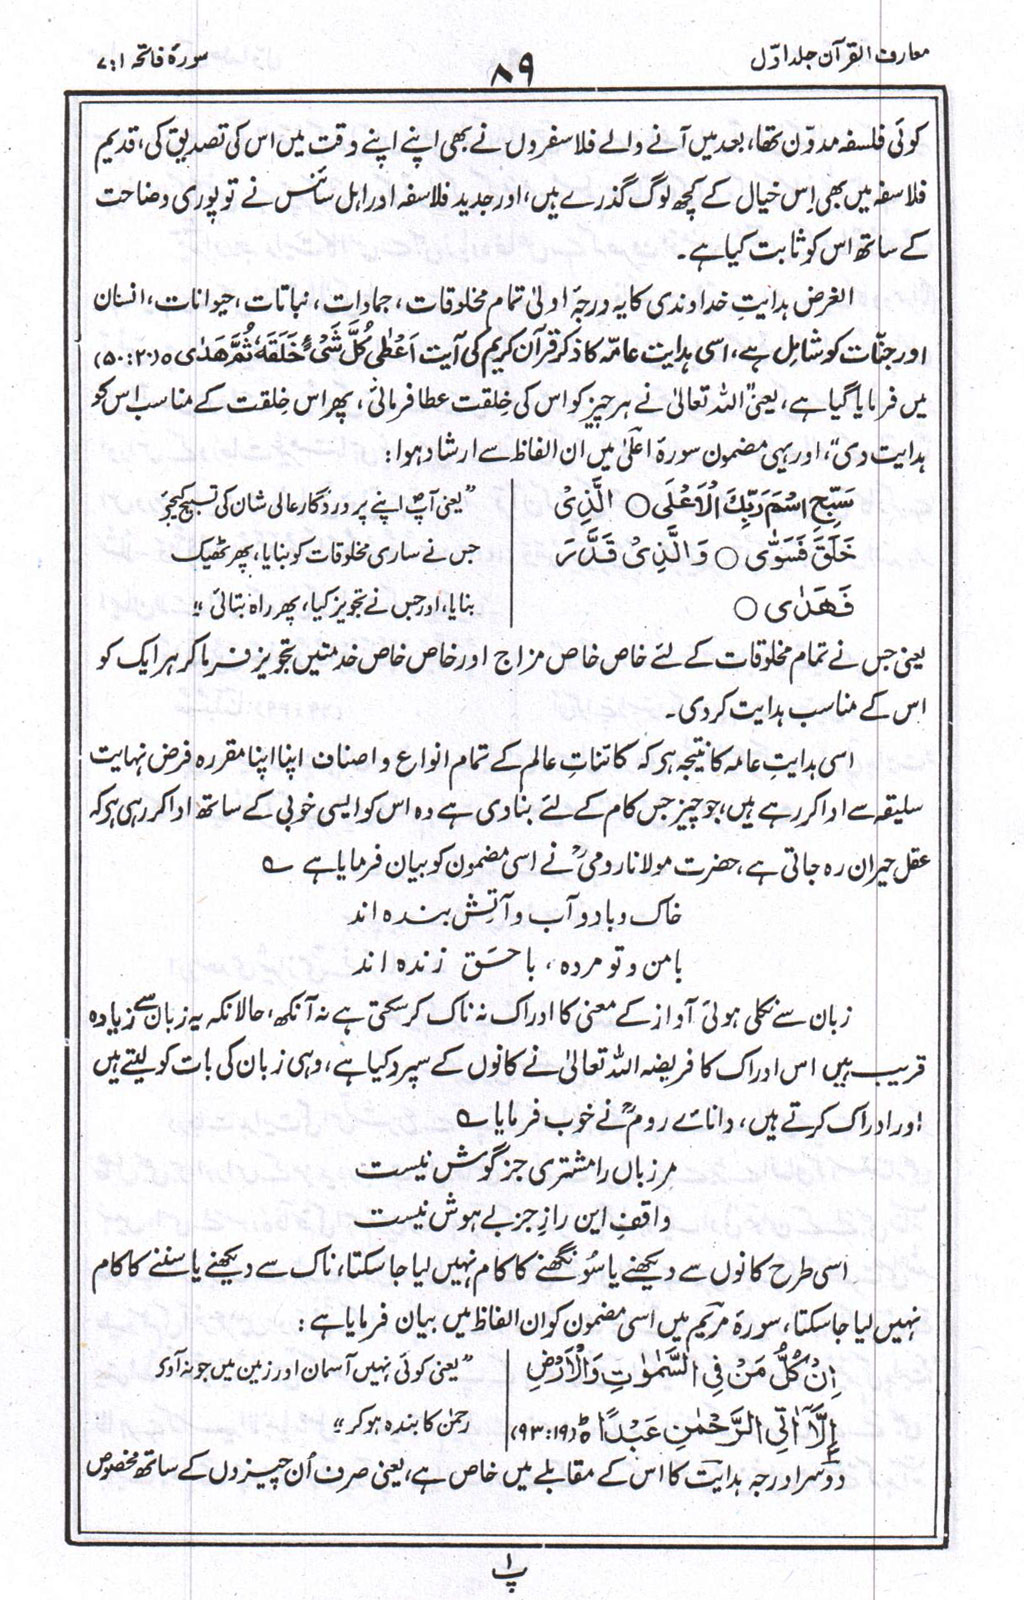 معارف القرآن جلد اوّل
۸۹
سورۂ فاتحہ ۱ : ۷
کوئی فلسفہ مدوّن تھا، بعد میں آنے والے فلاسفروں نے بھی اپنے اپنے وقت میں اس کی تصدیق کی، قدیم
فلاسفہ میں بھی اِس خیال کے کچھ لوگ گذرے ہیں، اور جدید فلاسفہ اور اہل سائنس نے تو پوری وضاحت
کے ساتھ اس کو ثابت کیا ہے۔
الغرض ہدایتِ خداوندی کا یہ درجۂ اولیٰ تمام مخلوقات، جمادات، نباتات، حیوانات، انسان
اور جنّات کو شامل ہے، اسی ہدایت عامّہ کا ذکر قرآن کریم کی آیت اَعْطٰی کُلَّ شَیْءٍ خَلْقَهٗ ثُمَّ هَدٰی ہ (۲۰ : ۵۰)
میں فرمایا گیا ہے، یعنی ”اللہ تعالیٰ نے ہر چیز کو اس کی خِلقت عطا فرمائی، پھر اس خِلقت کے مناسب اس کو
ہدایت دی“، اور یہی مضمون سورۂ اعلیٰ میں ان الفاظ سے ارشاد ہوا :
سَبِّحِ اسْمَ رَبِّكَ الْاَعْلَی ○ الَّذِیْ
خَلَقَ فَسَوّٰی ○ وَالَّذِیْ قَدَّرَ
فَهَدٰی ○
”یعنی آپؐ اپنے پروردگار عالی شان کی تسبیح کیجئے
جس نے ساری مخلوقات کو بنایا، پھر ٹھیک
بنایا، اور جس نے تجویز کیا، پھر راہ بتائی“
یعنی جس نے تمام مخلوقات کے لئے خاص خاص مزاج اور خاص خاص خدمتیں تجویز فرما کر ہر ایک کو
اس کے مناسب ہدایت کر دی۔
اسی ہدایتِ عامہ کا نتیجہ ہر کہ کائناتِ عالم کے تمام انواع و اصناف اپنا اپنا مقررہ فرض نہایت
سلیقہ سے ادا کر رہے ہیں، جو چیز جس کام کے لئے بنا دی ہے وہ اس کو ایسی خوبی کے ساتھ ادا کر رہی ہر کہ
عقل حیران رہ جاتی ہے، حضرت مولانا رومیؒ نے اسی مضمون کو بیان فرمایا ہے ؎
خاک و باد و آب و آتش بندہ اند
با من و تو مردہ، با حق زندہ اند
زبان سے نکلی ہوئی آواز کے معنی کا ادراک نہ ناک کر سکتی ہے نہ آنکھ، حالانکہ یہ زبان سے زیادہ
قریب ہیں اس ادراک کا فریضہ اللہ تعالیٰ نے کانوں کے سپرد کیا ہے، وہی زبان کی بات کو لیتے ہیں
اور ادراک کرتے ہیں، دانائے رومؒ نے خوب فرمایا ؎
مر زباں را مشتری جز گوش نیست
واقفِ این راز جز بے ہوش نیست
اسی طرح کانوں سے دیکھنے یا سُونگھنے کا کام نہیں لیا جا سکتا، ناک سے دیکھنے یا سننے کا کام
نہیں لیا جا سکتا، سورۂ مریم میں اسی مضمون کو ان الفاظ میں بیان فرمایا ہے :
اِنْ کُلُّ مَنْ فِی السَّمٰوٰتِ وَالْاَرْضِ
اِلَّآ اٰتِی الرَّحْمٰنِ عَبْدًا ہ (۱۹ : ۹۳)
”یعنی کوئی نہیں آسمان اور زمین میں جو نہ آوی
رحمٰن کا بندہ ہو کر“
دوسرا درجہ ہدایت کا اس کے مقابلے میں خاص ہے، یعنی صرف اُن چیزوں کے ساتھ مخصوص
پ ۱